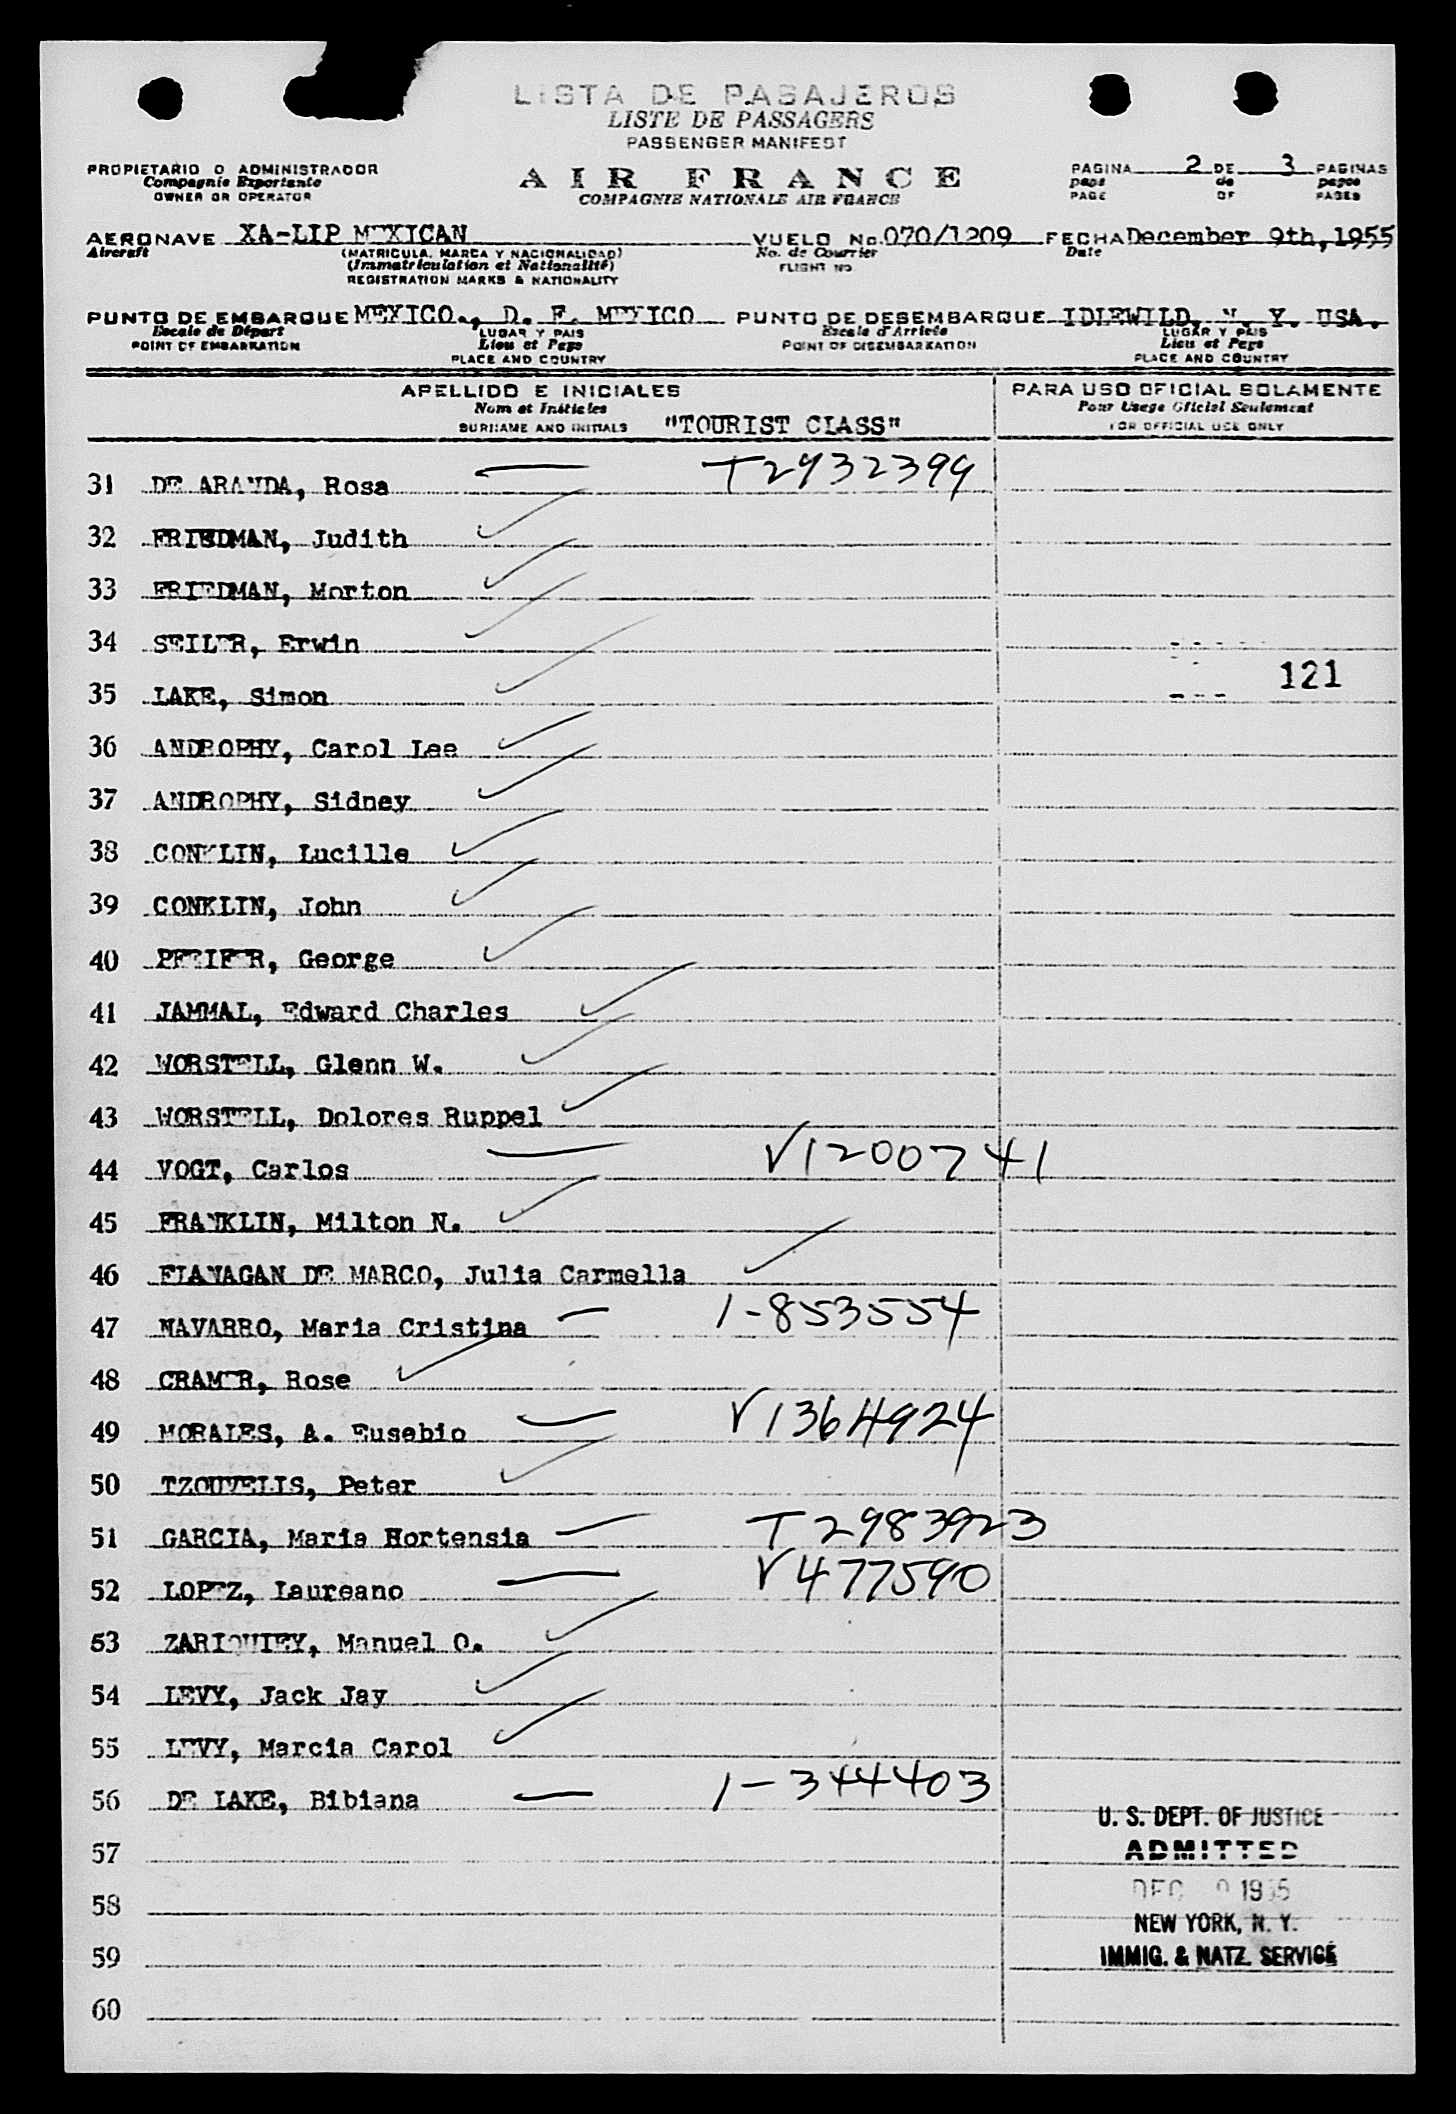 LISTA DE PASAJEROS
LISTE DE PASSAGERS
PASSENGER MANIFEST
PROPIETARIO O ADMINISTRADOR
Compagnie Exportante
OWNER OR OPERATOR
AIR FRANCE
COMPAGNIE NATIONALE AIR FRANCE
PAGINA 2 DE 3 PAGINAS
page de pages
PAGE OF PAGES
AERONAVE XA-LIP MEXICAN VUELO No. 070/1209 FECHA December 9th, 1955
Aircraft (MATRICULA, MARCA Y NACIONALIDAD) No. de Courrier Date
(Immatriculation et Nationalité) FLIGHT NO.
REGISTRATION MARKS & NATIONALITY
PUNTO DE EMBARQUE MEXICO., D. F. MEXICO PUNTO DE DESEMBARQUE IDLEWILD, N. Y. USA.
Escale de Départ LUGAR Y PAIS Escale d'Arrivée LUGAR Y PAIS
POINT OF EMBARKATION Lieu et Pays POINT OF DISEMBARKATION Lieu et Pays
PLACE AND COUNTRY PLACE AND COUNTRY
APELLIDO E INICIALES PARA USO OFICIAL SOLAMENTE
Nom et Initiales Pour Usage Officiel Seulement
SURNAME AND INITIALS "TOURIST CLASS" FOR OFFICIAL USE ONLY
31 DE ARANDA, Rosa T2932399
32 FRIEDMAN, Judith
33 FRIEDMAN, Morton
34 SEILER, Erwin
35 LAKE, Simon 121
36 ANDROPHY, Carol Lee
37 ANDROPHY, Sidney
38 CONKLIN, Lucille
39 CONKLIN, John
40 PFEIFER, George
41 JAMMAL, Edward Charles
42 WORSTELL, Glenn W.
43 WORSTELL, Dolores Ruppel
44 VOGT, Carlos V1200741
45 FRANKLIN, Milton N.
46 FLANAGAN DE MARCO, Julia Carmella
47 NAVARRO, Maria Cristina 1-853554
48 CRAMER, Rose
49 MORALES, A. Eusebio V1364924
50 TZOUVELIS, Peter
51 GARCIA, Maria Hortensia T2983923
52 LOPEZ, Laureano V477590
53 ZARIQUIEY, Manuel O.
54 LEVY, Jack Jay
55 LEVY, Marcia Carol
56 DE LAKE, Bibiana 1-344403
57
58
59
60
U. S. DEPT. OF JUSTICE
ADMITTED
DEC 9 1955
NEW YORK, N. Y.
IMMIG. & NATZ. SERVICE